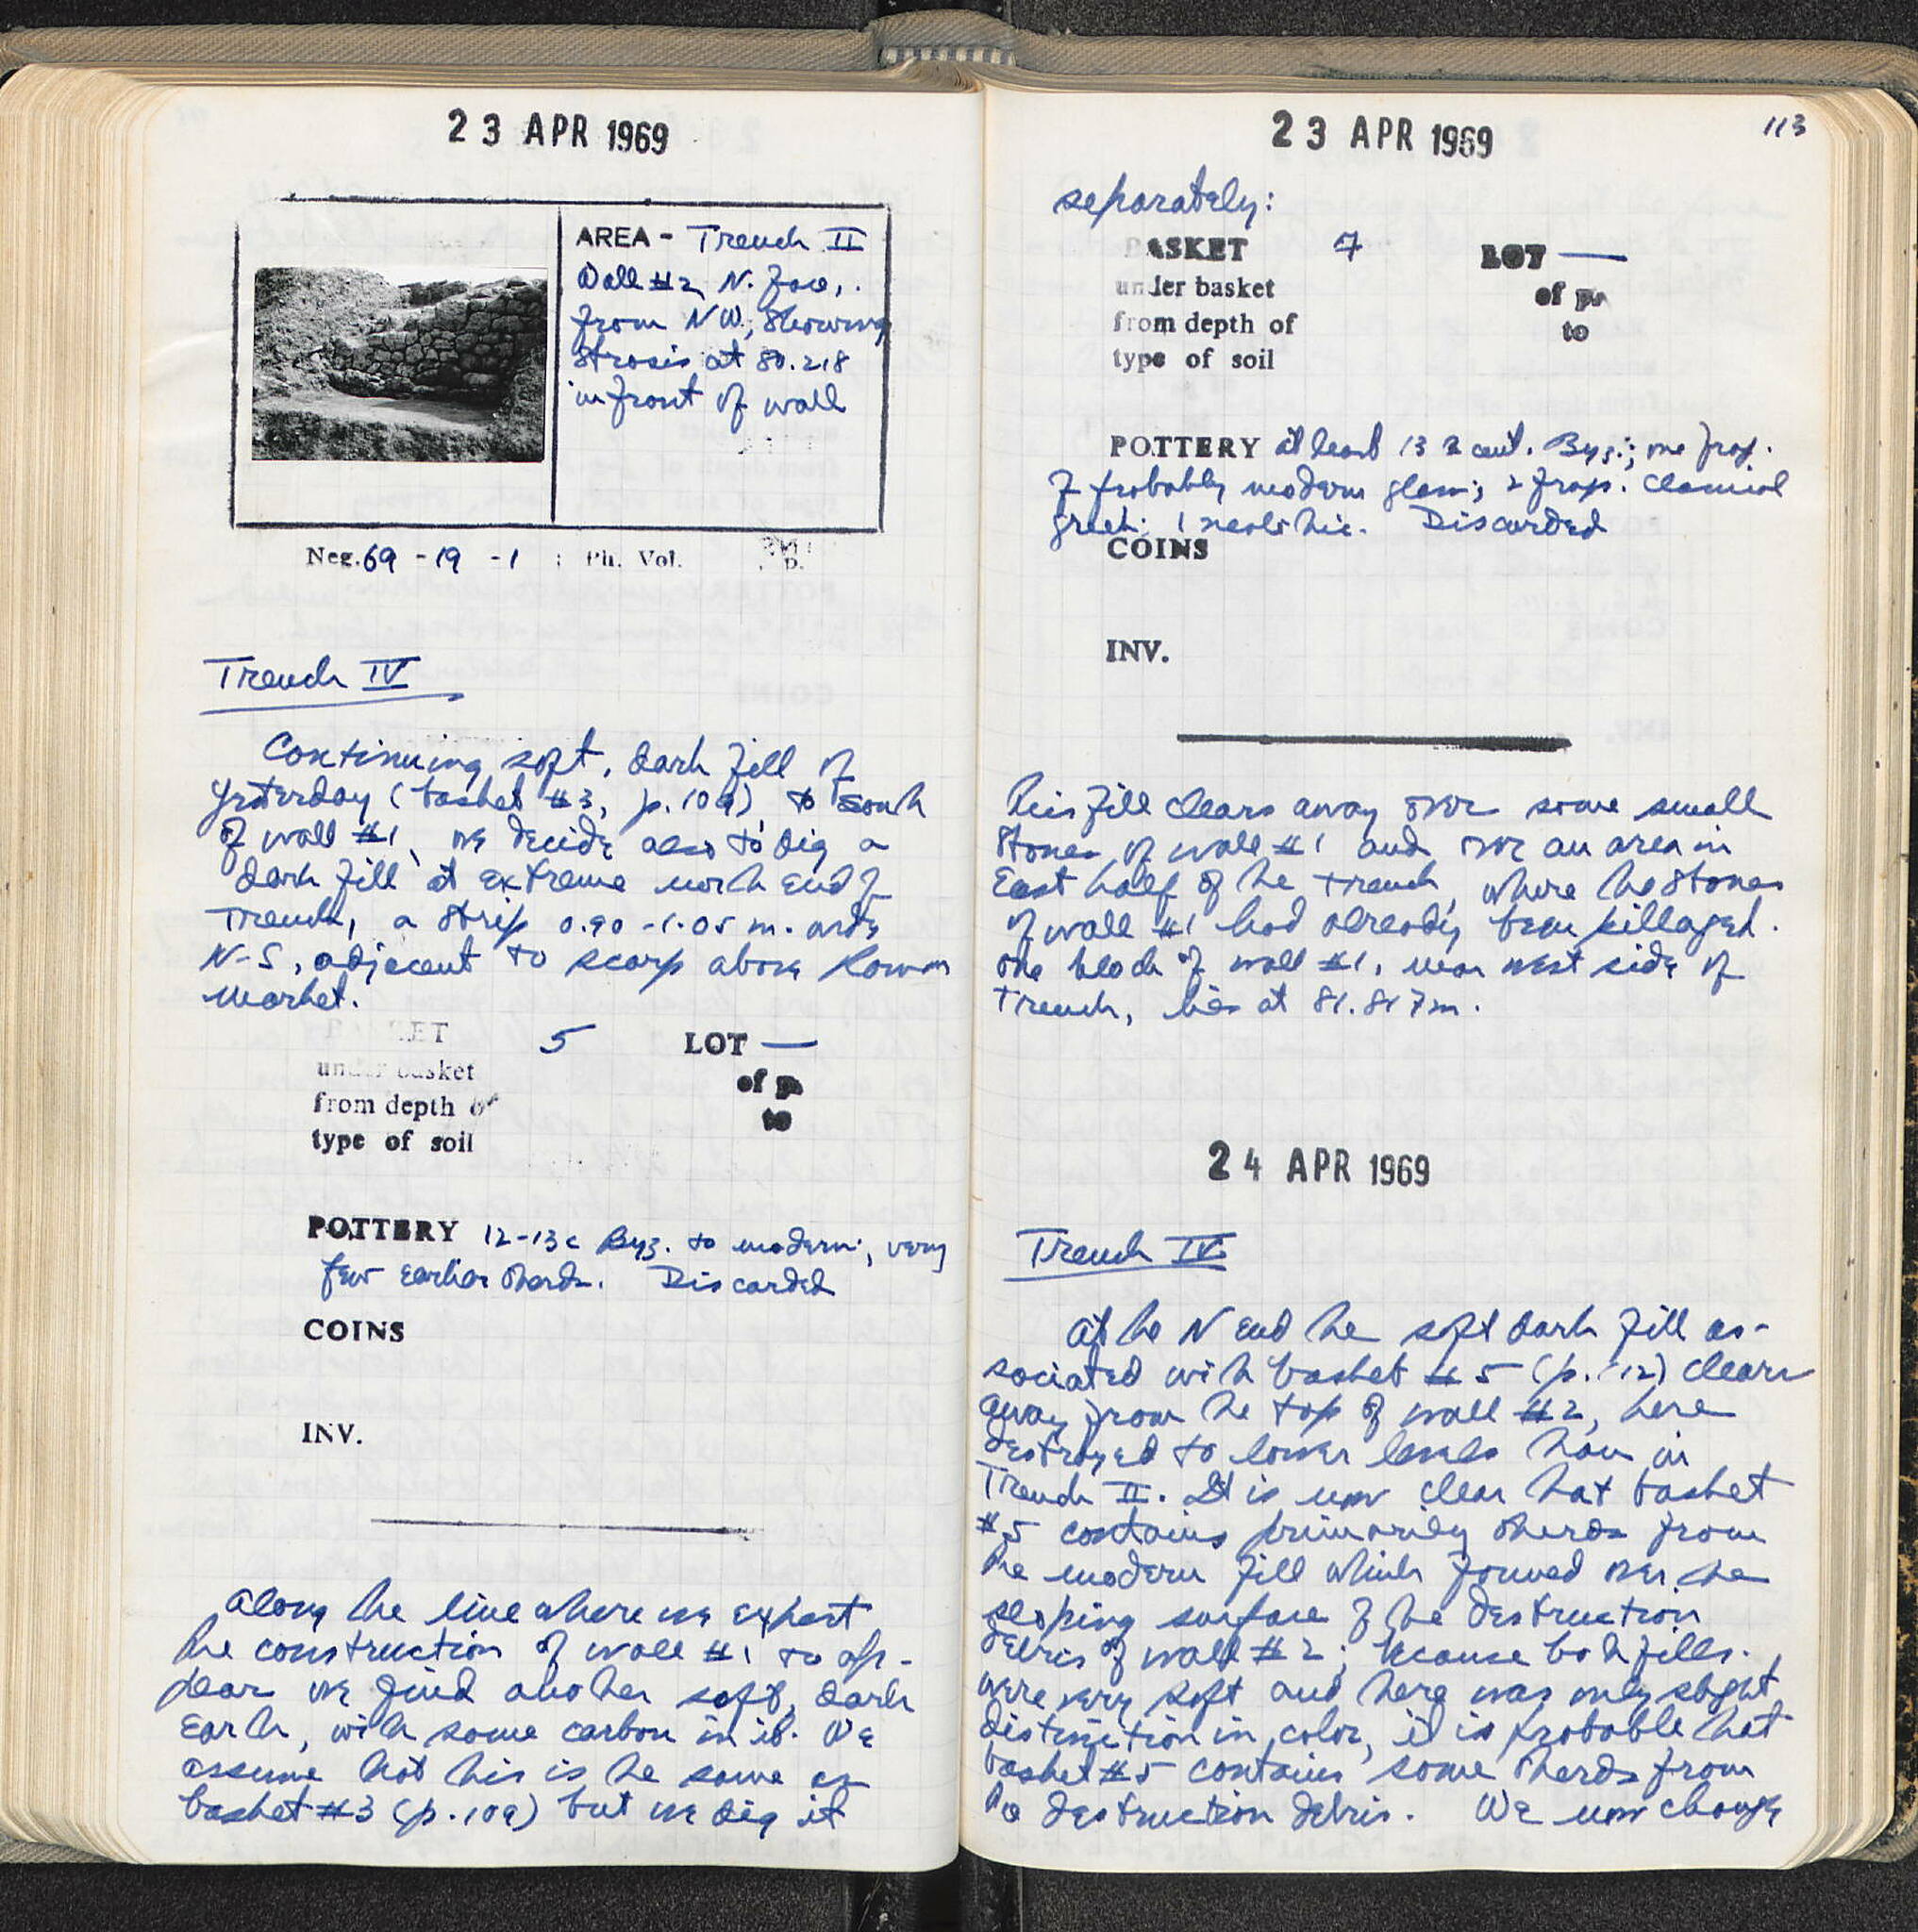 23 APR 1969
AREA - Trench II
Wall #2, N. face,
from NW, showing
strosis at 80.218
in front of wall
Neg. 69 - 19 - 1 : Ph. Vol. p.
Trench IV
Continuing soft, dark fill of
yesterday (basket #3, p. 109), to south
of wall #1, we decide also to dig a
dark fill at extreme north end of
Trench, a strip 0.90 - 1.05 m. wide
N-S, adjacent to scarp above Roman
Market.
BASKET 5 LOT —
under basket of p.
from depth of to
type of soil
POTTERY 12-13 c Byz. to modern; very
few earlier sherds. Discarded
COINS
INV.
Along the line where we expect
the construction of wall #1 to ap-
pear we find another soft, dark
earth, with some carbon in it. We
assume that this is the same as
basket #3 (p. 109) but we dig it
23 APR 1969
113
separately:
BASKET 7 LOT —
under basket of p.
from depth of to
type of soil
POTTERY at least 13 cent. Byz.; one frag.
of probably modern glass; 2 frags. Classical
Greek; 1 neolithic. Discarded
COINS
INV.
This fill clears away over some small
stones of wall #1 and over an area in
East half of the trench, where the stones
of wall #1 had already been pillaged.
One block of wall #1, near west side of
trench, lies at 81.817m.
24 APR 1969
Trench IV
At the N end the soft dark fill as-
sociated with basket #5 (p. 112) clears
away from the top of wall #2, here
destroyed to lower levels than in
Trench II. It is now clear that basket
#5 contains primarily sherds from
the modern fill which formed over the
sloping surface of the destruction
debris of wall #2; because both fills
were very soft and there was only slight
distinction in color, it is probable that
basket #5 contains some sherds from
the destruction debris. We now change